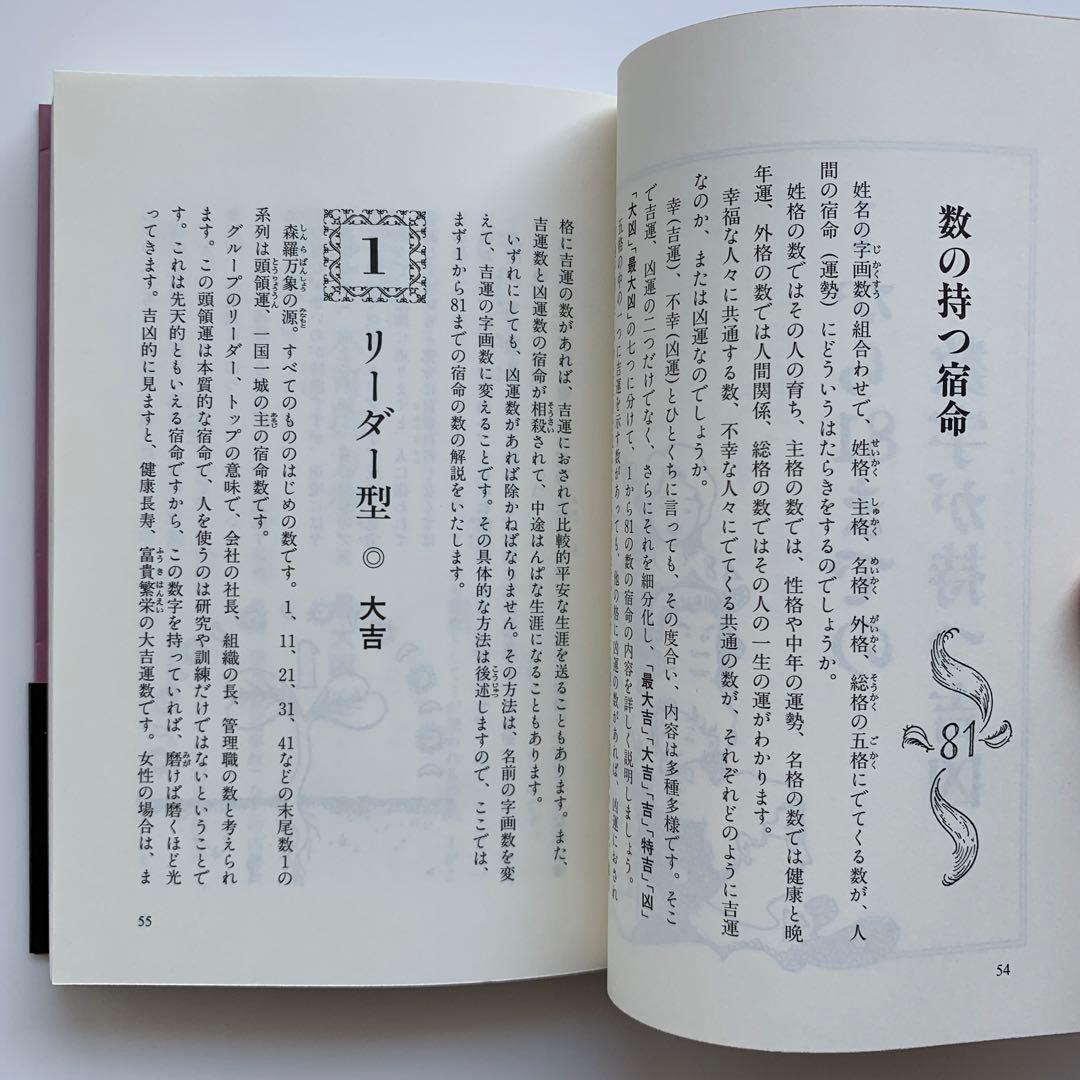 数の持つ宿命
81
姓名の字画数の組合わせで、姓格、主格、名格、外格、総格の五格にでてくる数が、人
間の宿命（運勢）にどういうはたらきをするのでしょうか。
姓格の数ではその人の育ち、主格の数では、性格や中年の運勢、名格の数では健康と晩
年運、外格の数では人間関係、総格の数ではその人の一生の運がわかります。
幸福な人々に共通する数、不幸な人々にでてくる共通の数が、それぞれどのように吉運
なのか、または凶運なのでしょうか。
幸（吉運）、不幸（凶運）とひとくちに言っても、その度合い、内容は多種多様です。そこ
で吉運、凶運の二つだけでなく、さらにそれを細分化し、「最大吉」「大吉」「吉」「特吉」「凶」
「大凶」「最大凶」の七つに分けて、1から81の数の宿命の内容を詳しく説明しましょう。
五格の中の一つに吉運を示す数があっても、他の格に凶運の数があれば、凶運におされ
54
格に吉運の数があれば、吉運におされて比較的平安な生涯を送ることもあります。また、
吉運数と凶運数の宿命が相殺されて、中途はんぱな生涯になることもあります。
いずれにしても、凶運数があれば除かねばなりません。その方法は、名前の字画数を変
えて、吉運の字画数に変えることです。その具体的な方法は後述しますので、ここでは、
まず1から81までの宿命の数の解説をいたします。
1 リーダー型 ◎ 大吉
森羅万象の源。すべてのもののはじめの数です。1、11、21、31、41などの末尾数1の
系列は頭領運、一国一城の主の宿命数です。
グループのリーダー、トップの意味で、会社の社長、組織の長、管理職の数と考えられ
ます。この頭領運は本質的な宿命で、人を使うのは研究や訓練だけではないということで
す。これは先天的ともいえる宿命ですから、この数字を持っていれば、磨けば磨くほど光
ってきます。吉凶的に見ますと、健康長寿、富貴繁栄の大吉運数です。女性の場合は、ま
55